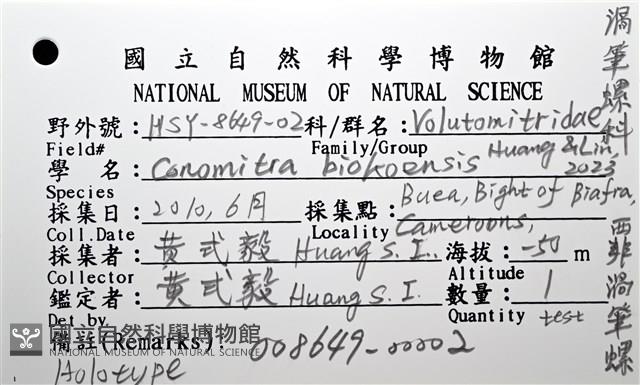 國立自然科學博物館
NATIONAL MUSEUM OF NATURAL SCIENCE
野外號：HSY-8649-02 科/群名：Volutomitridae 渦筆螺科
Field# Family/Group
學名：Conomitra biokoensis Huang & Lin, 2023
Species
採集日：2010, 6月 採集點：Buea, Bight of Biafra, Cameroons,
Coll.Date Locality
採集者：黃式毅 Huang S. I., 海拔：-50 m
Collector Altitude
鑑定者：黃式毅 Huang S. I. 數量：1
Det by Quantity test
備註(Remarks)：008649-00002
Holotype
西非渦筆螺
國立自然科學博物館
NATIONAL MUSEUM OF NATURAL SCIENCE